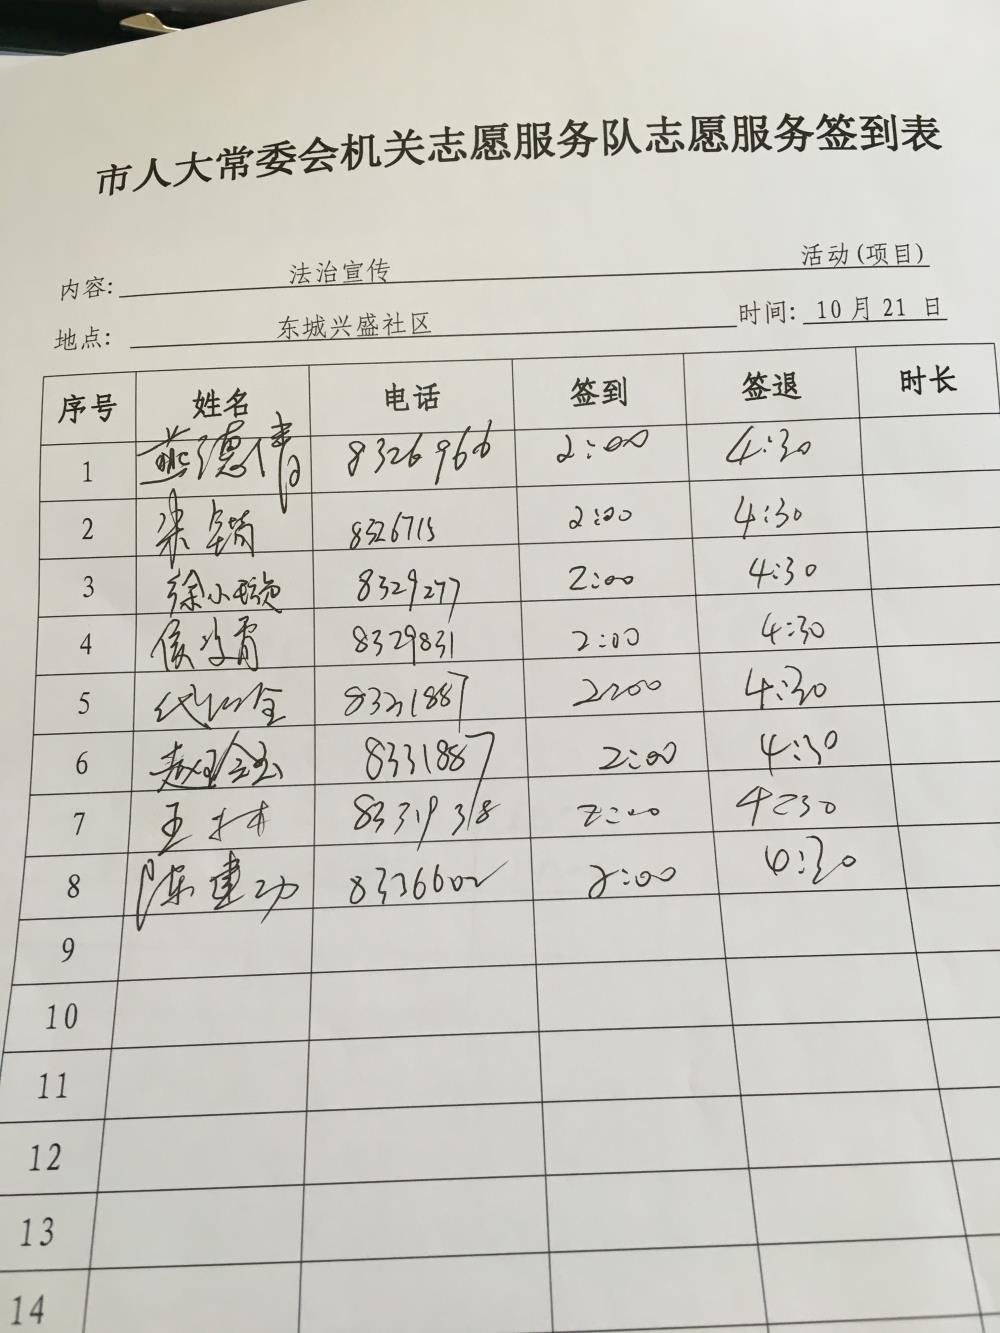 市人大常委会机关志愿服务队志愿服务签到表
内容: 法治宣传 活动(项目)
地点: 东城兴盛社区 时间: 10月21日
序号 姓名 电话 签到 签退 时长
1 燕德倩 8326966 2:00 4:30
2 8326715 2:00 4:30
3 徐小璇 8329277 2:00 4:30
4 8329831 2:00 4:30
5 8331887 2:00 4:30
6 8331887 2:00 4:30
7 王林 8331938 2:00 4:30
8 陈建功 8336602 2:00 4:30
9
10
11
12
13
14